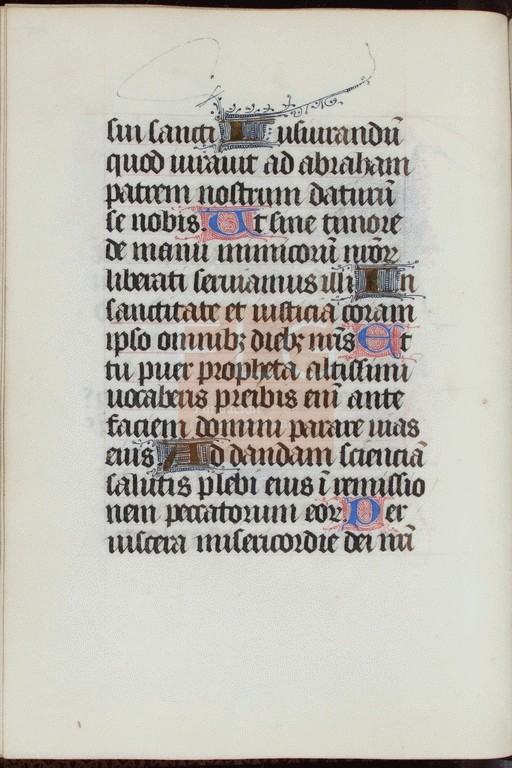 sui sancti Iusiurandū
quod iurauit ad abraham
patrem nostrum daturū
se nobis. Ut sine timore
de manu inimicorū nr̄oꝝ
liberati seruiamus illi In
sanctitate et iusticia coram
ipso omnibꝫ diebꝫ nr̄is Et
tu puer propheta altissimi
uocaberis preibis eni̅ ante
faciem domini parare uias
eius Ad dandam scienciā
salutis plebi eius ī remissio
nem peccatorum eoꝝ. Per
uiscera misericordie dei nr̄i